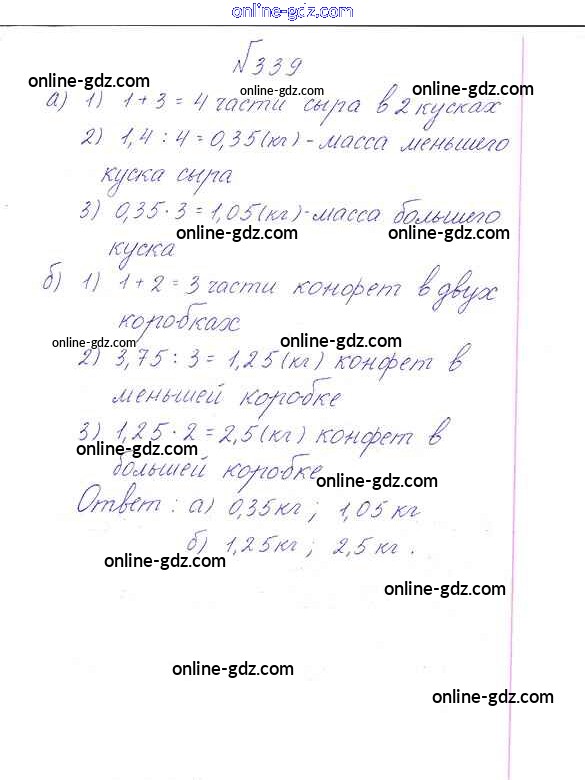 online-gdz.com online-gdz.com
№339
online-gdz.com
online-gdz.com
а) 1) 1+3=4 части сыра в 2 кусках
2) 1,4:4=0,35(кг)-масса меньшего
куска сыра
3) 0,35·3=1,05(кг)-масса большего
online-gdz.com online-gdz.com
куска
б) 1) 1+2=3 части конфет в двух
коробках
online-gdz.com online-gdz.com
2) 3,75:3=1,25(кг) конфет в
меньшей коробке
3) 1,25·2=2,5(кг) конфет в
online-gdz.com
большей коробке
online-gdz.com
Ответ: а) 0,35кг; 1,05 кг
б) 1,25кг; 2,5 кг.
online-gdz.com
online-gdz.com
online-gdz.com
online-gdz.com